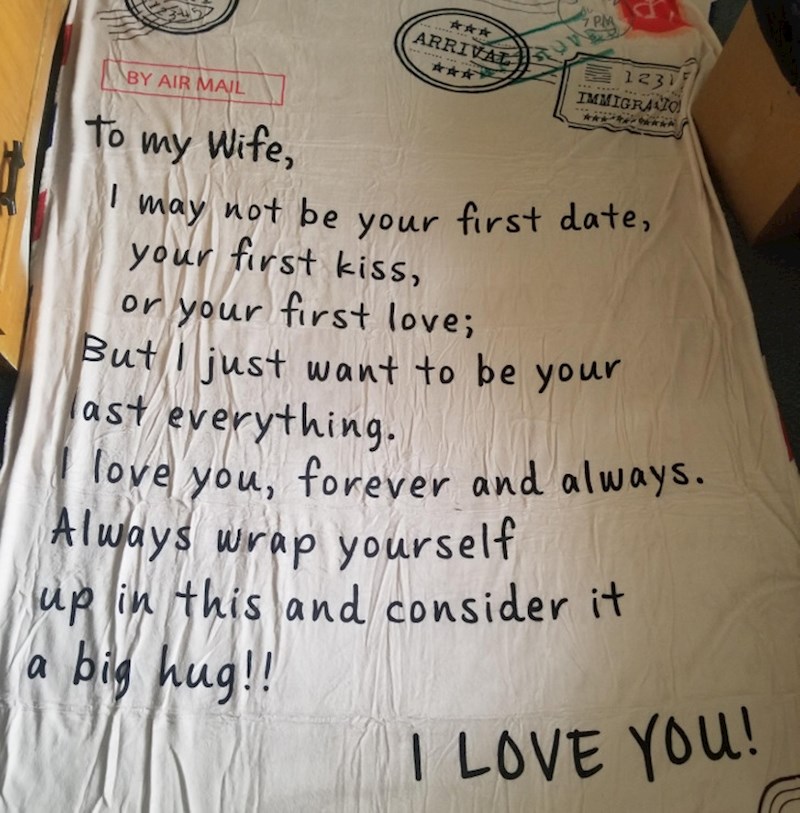 ARRIVAL
7 PM
BY AIR MAIL
IMMIGRATIO
To my Wife,
I may not be your first date,
your first kiss,
or your first love;
But I just want to be your
last everything.
I love you, forever and always.
Always wrap yourself
up in this and consider it
a big hug!!
I LOVE YOU!